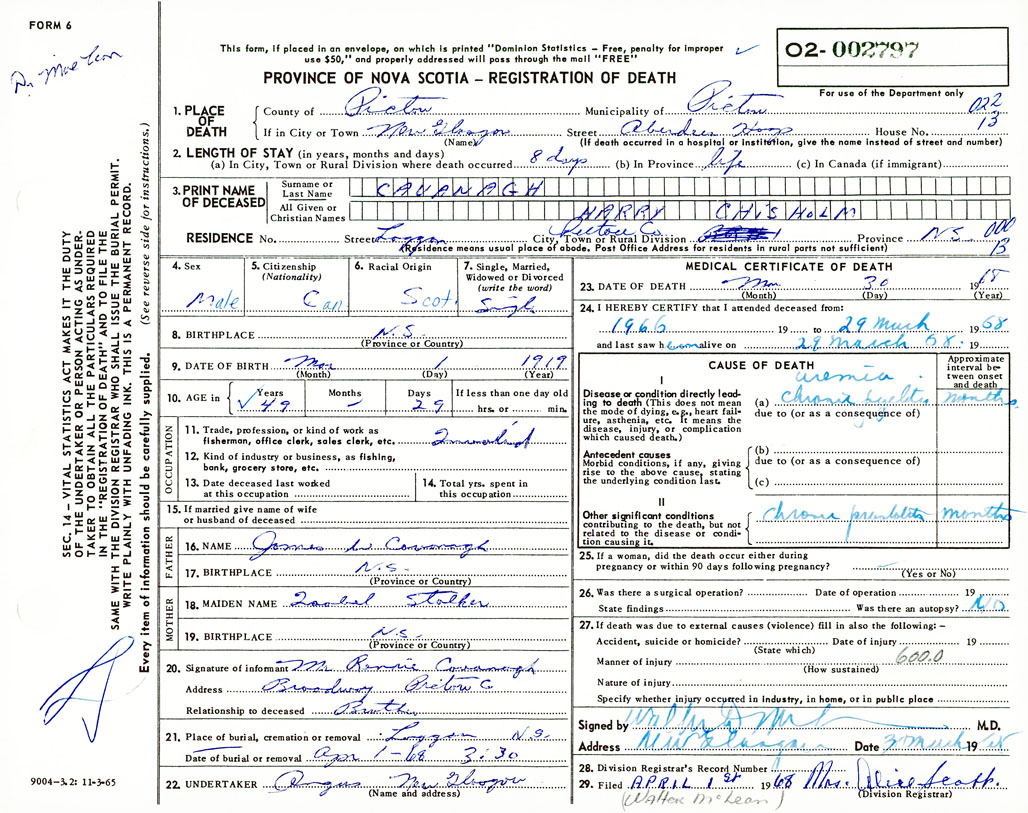 FORM 6
Dr. MacLean
This form, if placed in an envelope, on which is printed "Dominion Statistics – Free, penalty for improper
use $50," and properly addressed will pass through the mail "FREE"
02-002797
For use of the Department only
PROVINCE OF NOVA SCOTIA – REGISTRATION OF DEATH
022
13
1. PLACE OF DEATH
County of Pictou Municipality of Pictou
If in City or Town New Glasgow Street Aberdeen Hosp House No.
(Name) (If death occurred in a hospital or institution, give the name instead of street and number)
2. LENGTH OF STAY (in years, months and days)
(a) In City, Town or Rural Division where death occurred 8 days (b) In Province life (c) In Canada (if immigrant)
3. PRINT NAME OF DECEASED
Surname or Last Name CAVANAGH
All Given or Christian Names HARRY CHISHOLM
RESIDENCE No. Street Loggan City, Town or Rural Division Pictou Co. Province N.S. 000
13
(Residence means usual place of abode. Post Office Address for residents in rural parts not sufficient)
4. Sex Male
5. Citizenship (Nationality) Can
6. Racial Origin Scot.
7. Single, Married, Widowed or Divorced (write the word) Single
8. BIRTHPLACE N.S.
(Province or Country)
9. DATE OF BIRTH Mar 1 1919
(Month) (Day) (Year)
10. AGE in Years 49 Months – Days 29 If less than one day old
hrs. or min.
OCCUPATION
11. Trade, profession, or kind of work as
fisherman, office clerk, sales clerk, etc.
12. Kind of industry or business, as fishing,
bank, grocery store, etc.
13. Date deceased last worked
at this occupation
14. Total yrs. spent in
this occupation
15. If married give name of wife
or husband of deceased
FATHER
16. NAME James W Cavanagh
17. BIRTHPLACE N.S.
(Province or Country)
MOTHER
18. MAIDEN NAME Isabel Stalker
19. BIRTHPLACE N.S.
(Province or Country)
20. Signature of informant Mr Cavanagh
Address Broadway Pictou C
Relationship to deceased Brother
21. Place of burial, cremation or removal Loggan N.S.
Date of burial or removal Apr 1-68 3:30
22. UNDERTAKER Angus New Glasgow
(Name and address)
MEDICAL CERTIFICATE OF DEATH
23. DATE OF DEATH Mar 30 1968
(Month) (Day) (Year)
24. I HEREBY CERTIFY that I attended deceased from:
1966 19 to 29 March 1968
and last saw him alive on 29 March 68. 19
CAUSE OF DEATH
Approximate interval between onset and death
I
Disease or condition directly leading to death (This does not mean the mode of dying, e.g., heart failure, asthenia, etc. It means the disease, injury, or complication which caused death.)
uremia
(a) chronic pyelitis months
due to (or as a consequence of)
Antecedent causes
Morbid conditions, if any, giving rise to the above cause, stating the underlying condition last.
(b)
due to (or as a consequence of)
(c)
II
Other significant conditions
contributing to the death, but not related to the disease or condition causing it.
chronic prostatitis months
25. If a woman, did the death occur either during
pregnancy or within 90 days following pregnancy?
(Yes or No)
26. Was there a surgical operation? Date of operation 19
State findings Was there an autopsy? No
27. If death was due to external causes (violence) fill in also the following: –
Accident, suicide or homicide? Date of injury 19
(State which)
Manner of injury 600.0
(How sustained)
Nature of injury
Specify whether injury occurred in industry, in home, or in public place
Signed by M.D.
Address New Glasgow Date 3 March 1968
28. Division Registrar's Record Number
29. Filed APRIL 1st 1968 Mrs. Alice Scott.
(Walter McLean) (Division Registrar)
SEC. 14 – VITAL STATISTICS ACT MAKES IT THE DUTY
OF THE UNDERTAKER OR PERSON ACTING AS UNDER-
TAKER TO OBTAIN ALL THE PARTICULARS REQUIRED
IN THE "REGISTRATION OF DEATH" AND TO FILE THE
SAME WITH THE DIVISION REGISTRAR WHO SHALL ISSUE THE BURIAL PERMIT.
WRITE PLAINLY WITH UNFADING INK. THIS IS A PERMANENT RECORD.
Every item of information should be carefully supplied. (See reverse side for instructions.)
9004-3.2: 11-3-65